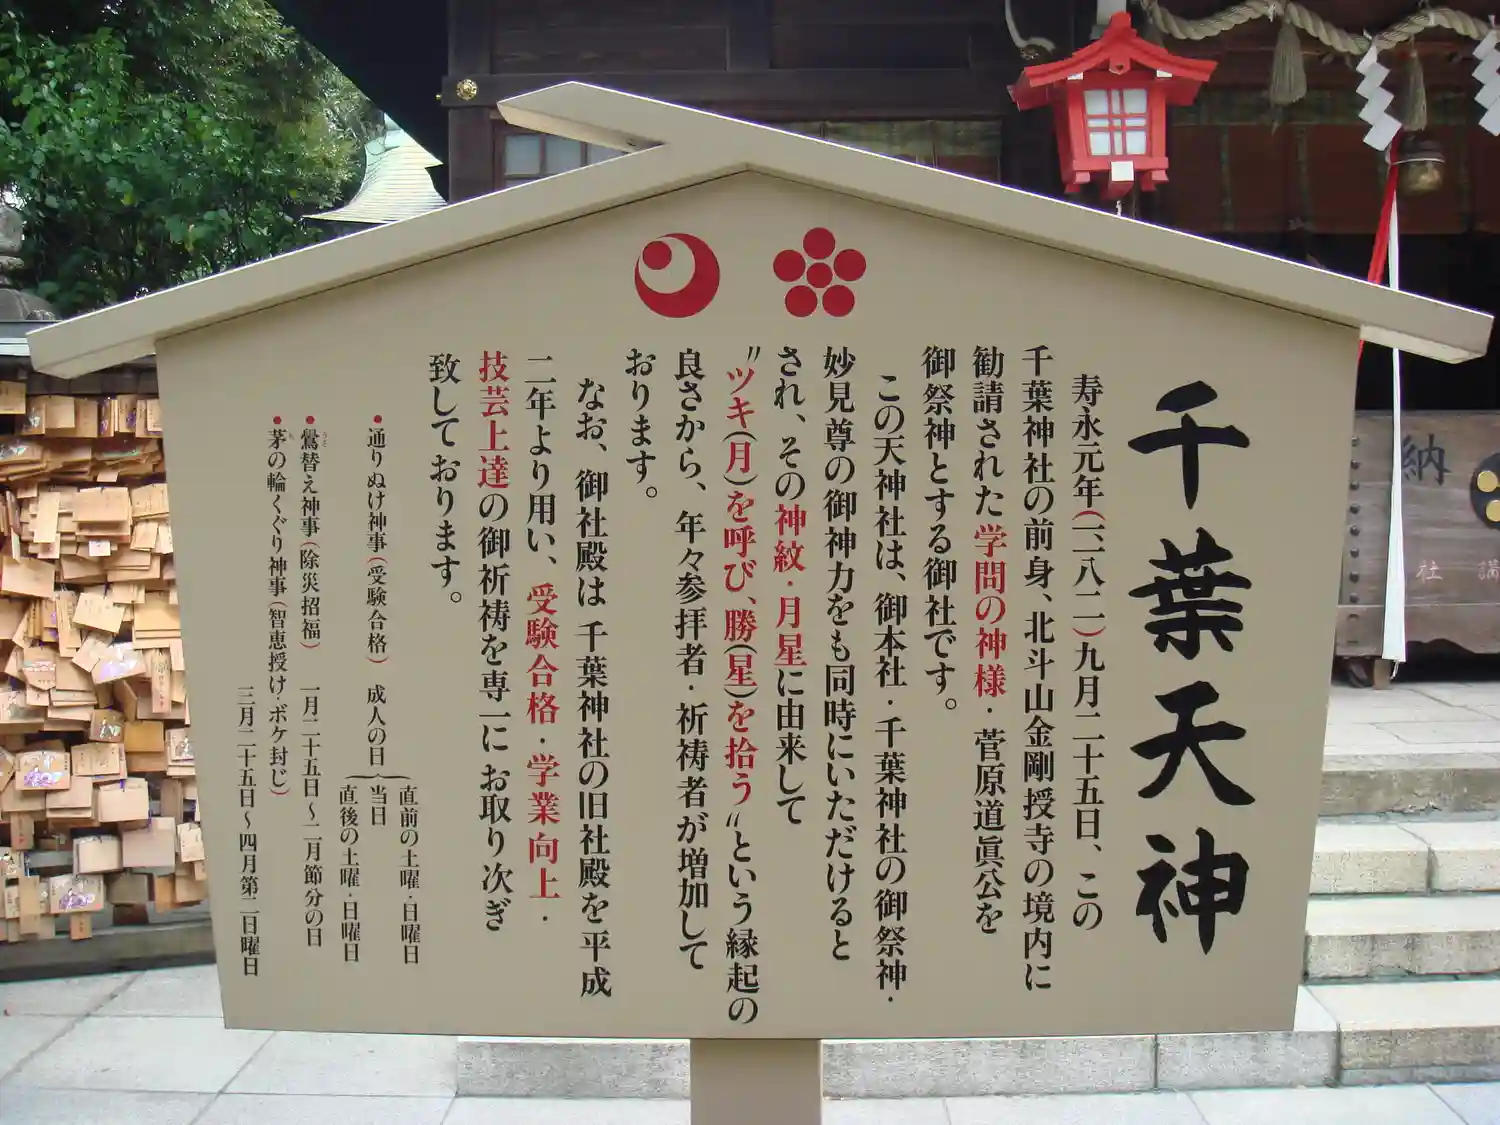 千葉天神
寿永元年(一一八二)九月二十五日、この
千葉神社の前身、北斗山金剛授寺の境内に
勧請された学問の神様・菅原道眞公を
御祭神とする御社です。
この天神社は、御本社・千葉神社の御祭神・
妙見尊の御神力をも同時にいただけると
され、その神紋・月星に由来して
〝ツキ(月)を呼び、勝(星)を拾う〟という縁起の
良さから、年々参拝者・祈祷者が増加して
おります。
なお、御社殿は千葉神社の旧社殿を平成
二年より用い、受験合格・学業向上・
技芸上達の御祈祷を専一にお取り次ぎ
致しております。
●通りぬけ神事(受験合格) 成人の日
直前の土曜・日曜日
当日
直後の土曜・日曜日
●鷽替え神事(除災招福) 一月二十五日〜二月節分の日
うそ
●茅の輪くぐり神事(智恵授け・ボケ封じ)
ち
三月二十五日〜四月第二日曜日
納
社
講